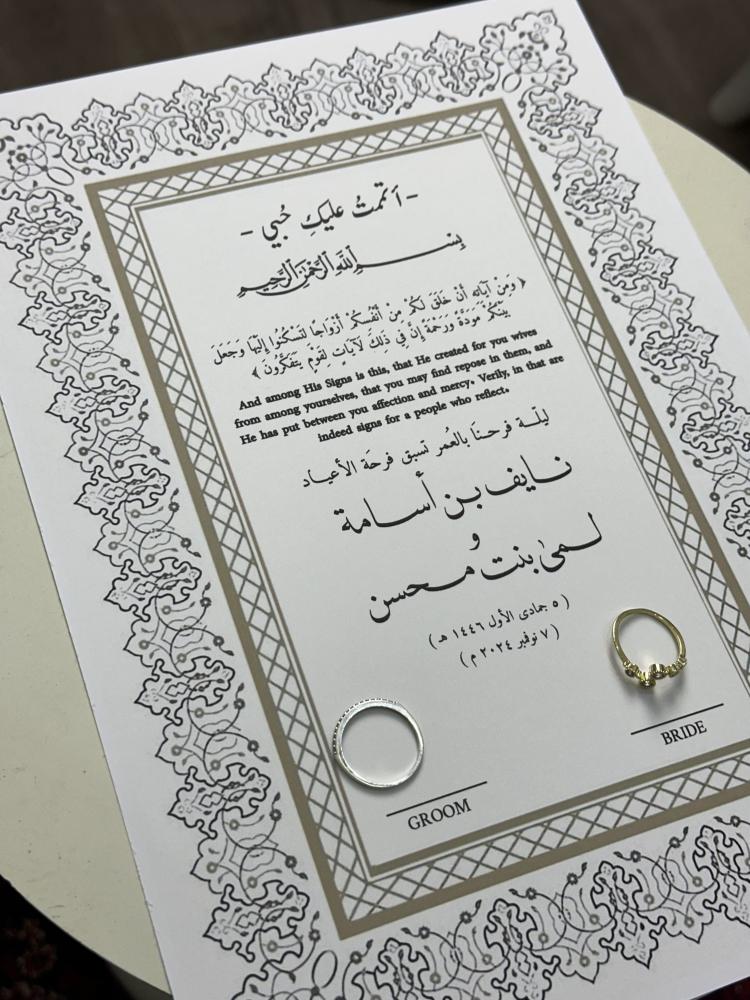 - أتممتُ عليكِ حُبي -
بِسْــــمِ اللَّهِ الرَّحْمٰنِ الرَّحِيمِ
﴿ وَمِنْ آيَاتِهِ أَنْ خَلَقَ لَكُمْ مِنْ أَنْفُسِكُمْ أَزْوَاجًا لِتَسْكُنُوا إِلَيْهَا وَجَعَلَ
بَيْنَكُمْ مَوَدَّةً وَرَحْمَةً إِنَّ فِي ذَلِكَ لَآيَاتٍ لِقَوْمٍ يَتَفَكَّرُونَ ﴾
And among His Signs is this, that He created for you wives
from among yourselves, that you may find repose in them, and
He has put between you affection and mercy. Verily, in that are
indeed signs for a people who reflect.
ليلَـة فرحـنَا بالعُمر تسبق فرحَـة الأعيـاد
نـايف بن أسـامة
و
لـمىٰ بنت محـسن
( ٥ جمادى الأول ١٤٤٦ هـ )
( ٧ نوفمبر ٢٠٢٤ م )
BRIDE
GROOM